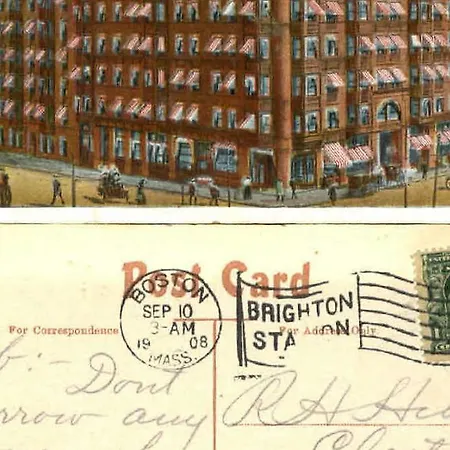 Post Card
BOSTON
SEP 10
3-AM
19 08
MASS.
BRIGHTON
STA ON
For Correspondence
For Address Only.
b:- Dont
any
R H